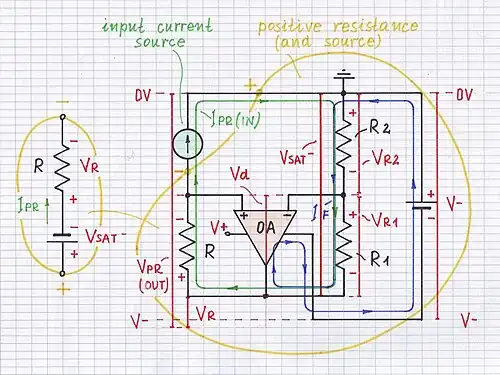 input current
source
positive resistance
(and source)
0V
IPR(IN)
0V
R2
R
VR
VSAT-
VR2
IPR
Vd
V-
VSAT-
V+
OA
IF
VR1
R
R1
VPR
(OUT)
VR
V-
V-